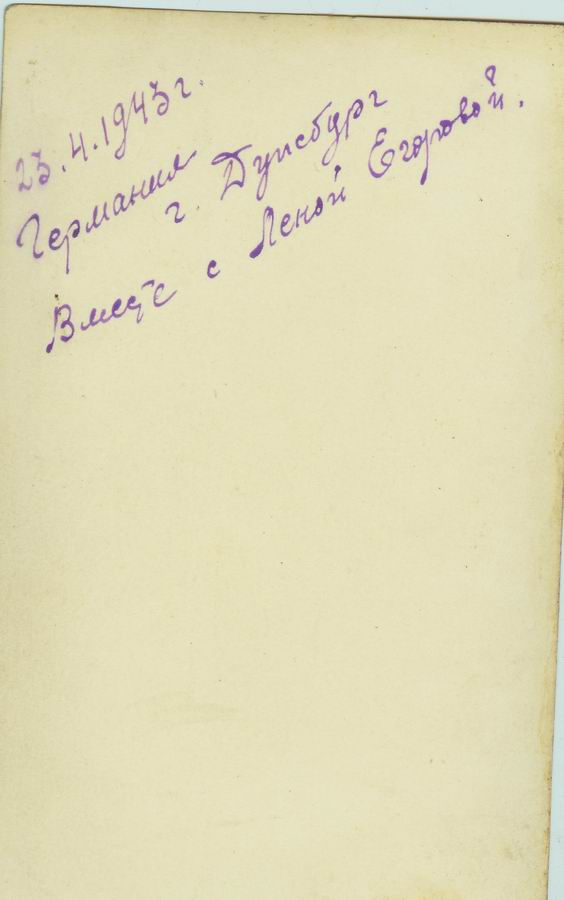 23.4.1943г.
Германия
г. Дуисбург
Вместе с Леной Егоровой.